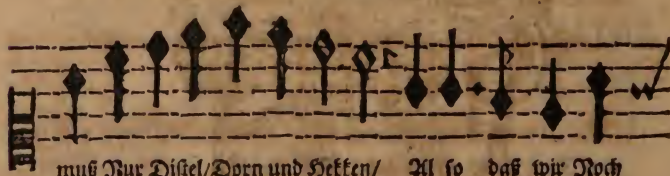 muß Nur Distel/Dorn und Hekken/ Al so daß wir Noch